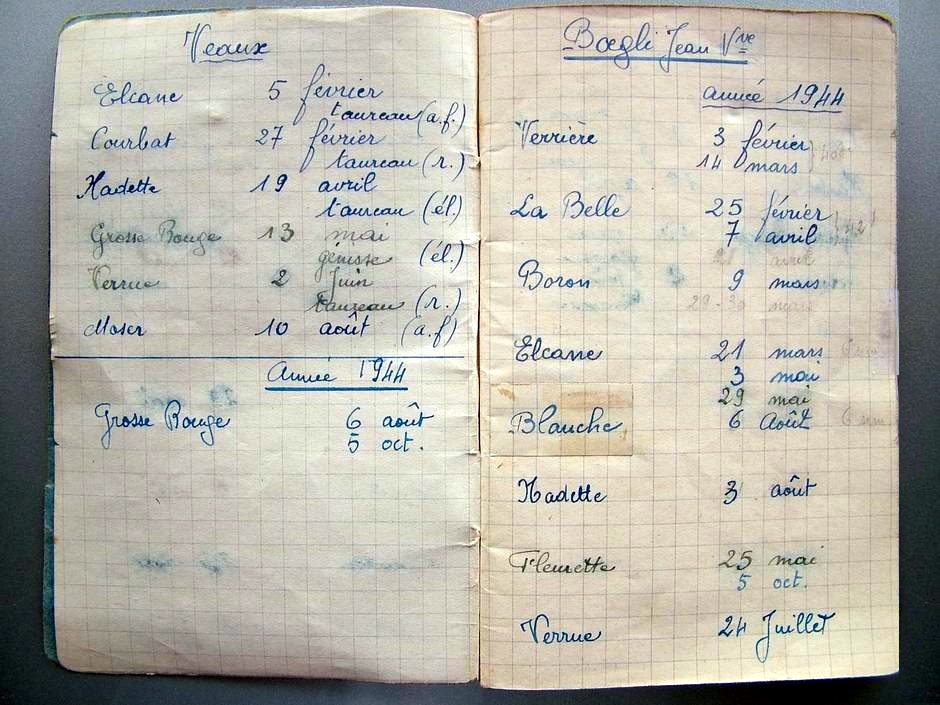 Veaux
Elcane 5 février
taureau (a.f.)
Courbat 27 février
taureau (r.)
Nadette 19 avril
taureau (él.)
Grosse Rouge 13 mai
génisse (él.)
Verrue 2 Juin
taureau (r.)
Moser 10 août (a.f)
Année 1944
Grosse Rouge 6 août
5 oct.
Bœgli Jean Vve
année 1944
Verrière 3 février
14 mars
La Belle 25 février
7 avril
avril
Boron 9 mars
29-30 mai
Elcane 21 mars
3 mai
29 mai
Blanche 6 Août
Nadette 3 août
Fleurette 25 mai
5 oct.
Verrue 24 Juillet